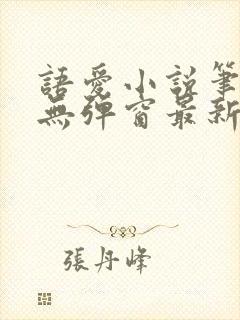 語愛小說筆
無彈窗最新
張丹峰